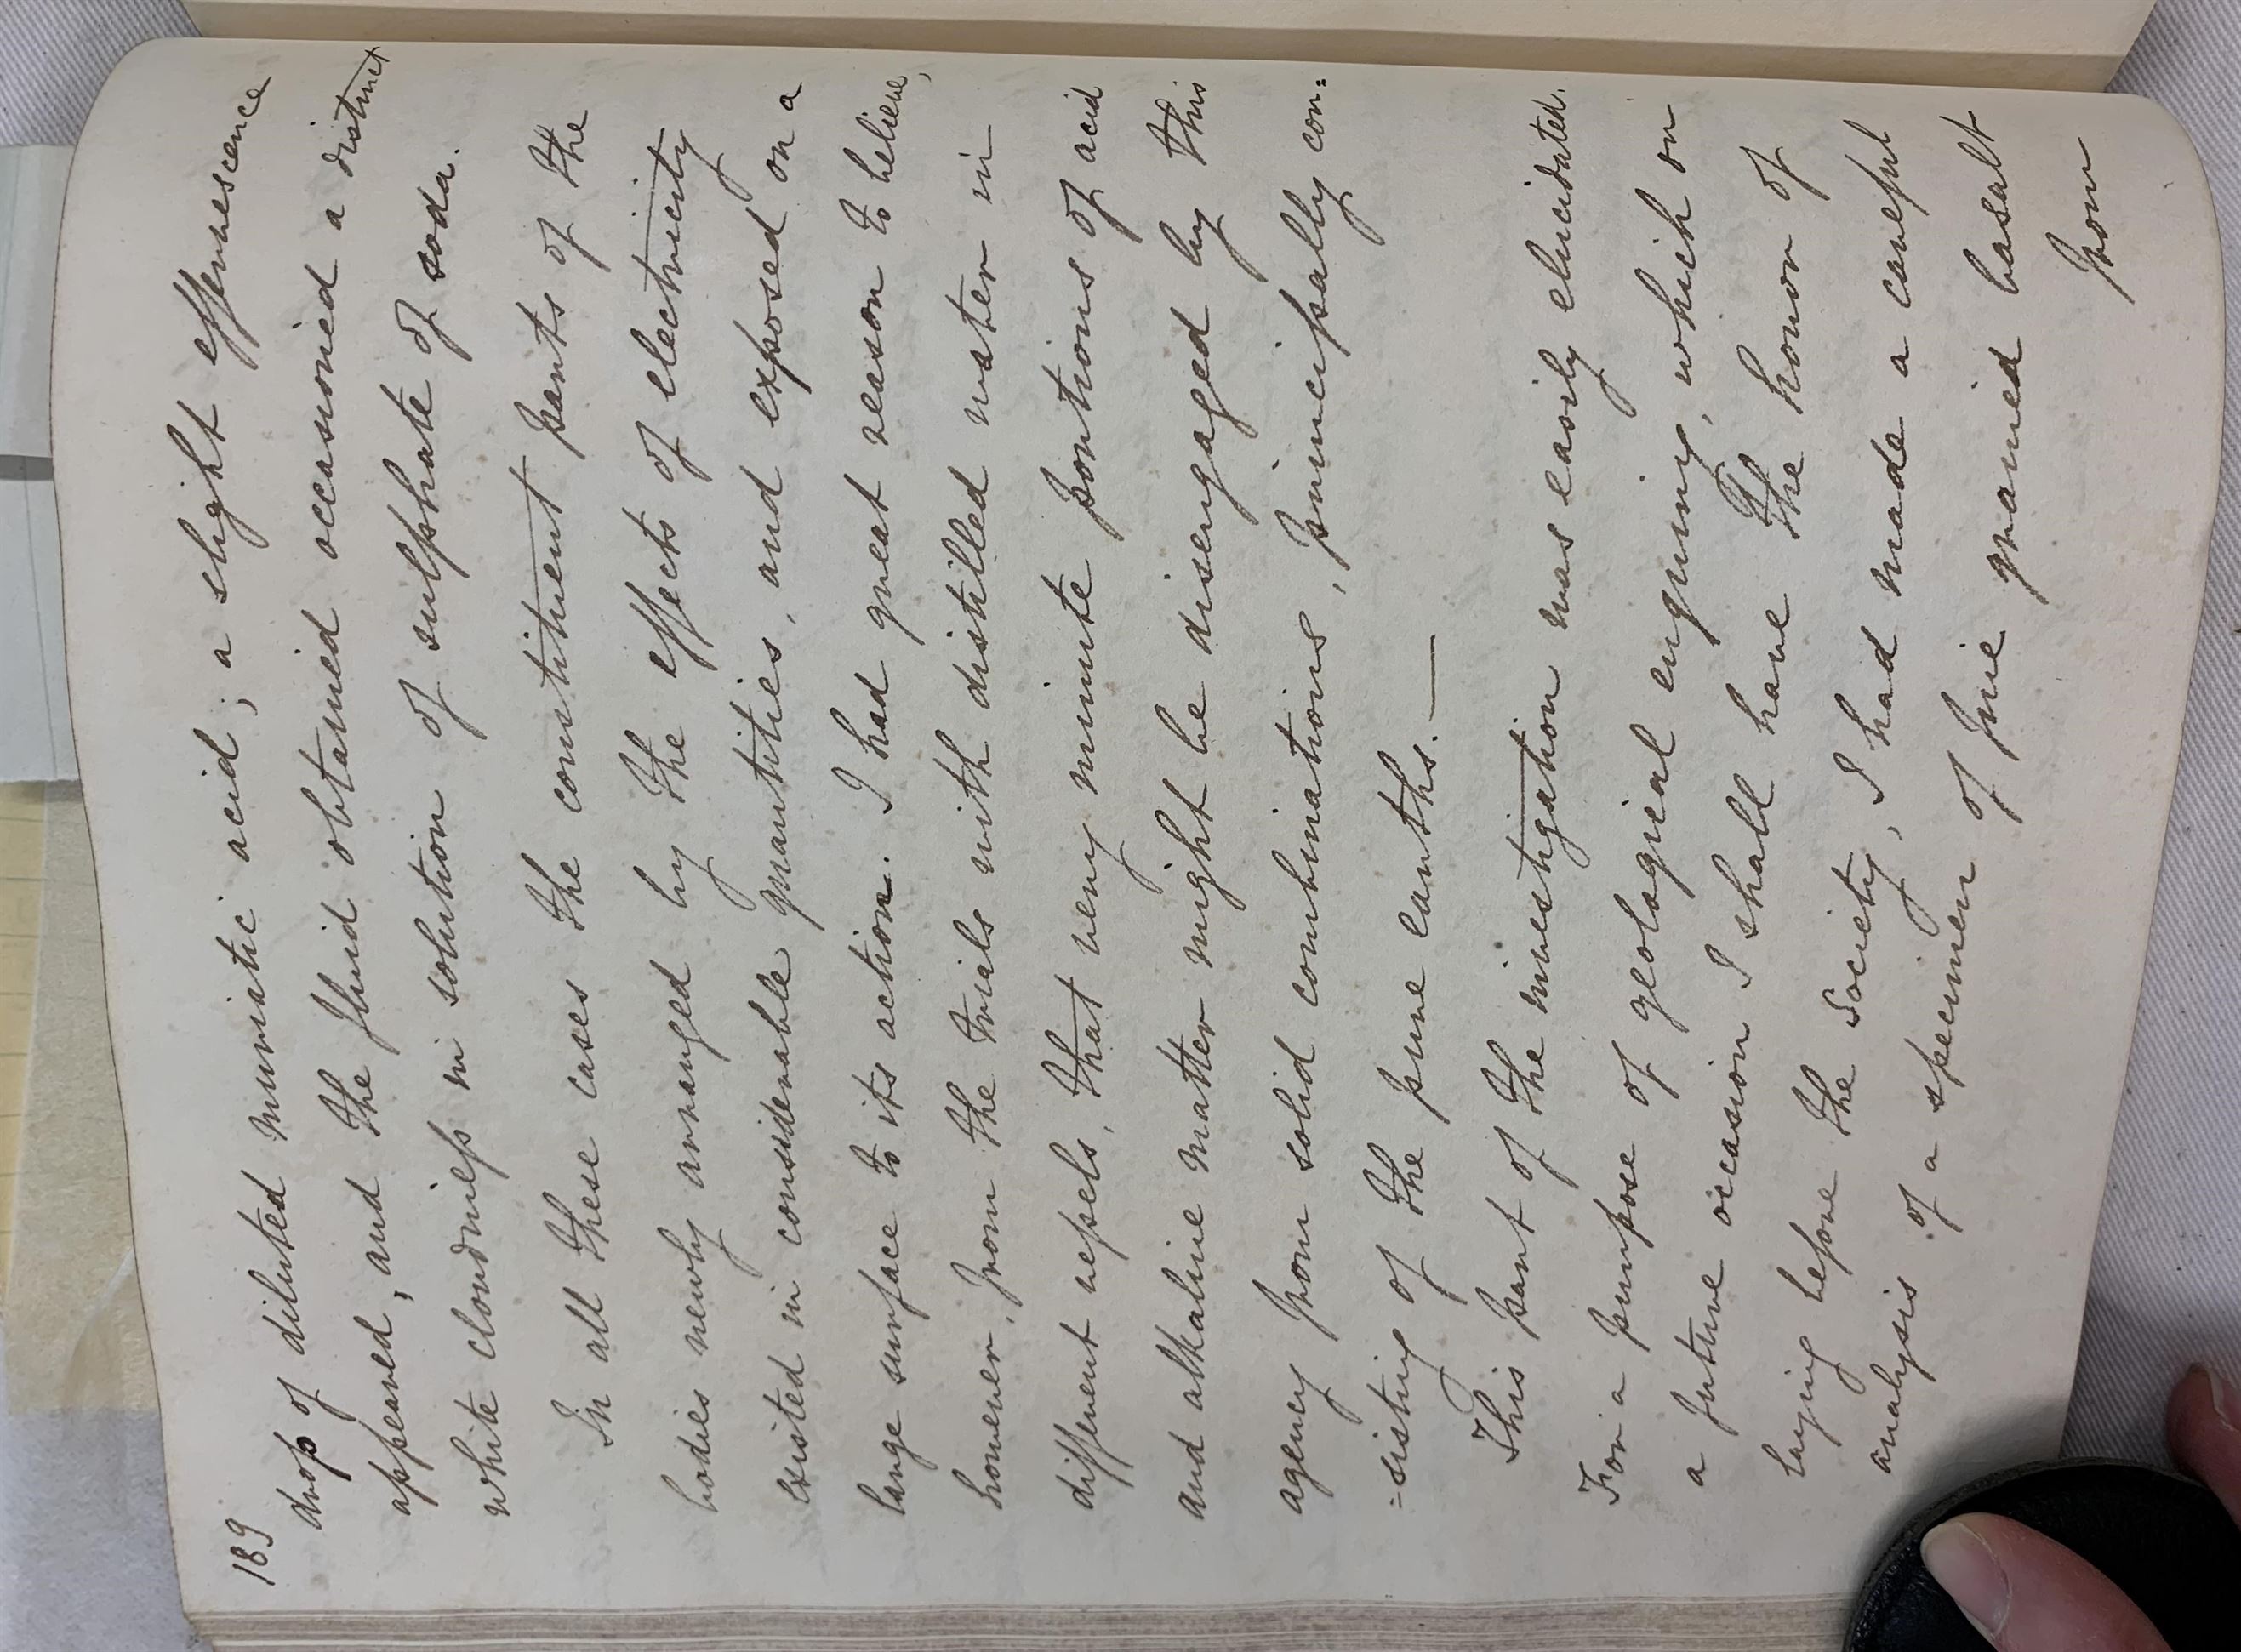 189
drop of diluted muriatic acid; a slight effervescence
appeared, and the fluid obtained occasioned a distinct
white cloudiness in solution of sulphate of soda.
In all these cases the constituent parts of the
bodies newly arranged by the effects of electricity
existed in considerable quantities, and exposed on a
large surface to its action. I had great reason to believe,
however, from the trials with distilled water in
different vessels, that very minute portions of acid
and alkaline matter might be disengaged by this
agency from solid combinations, principally con=
=sisting of the pure earths. —
This part of the investigation was easily elucidated.
For a purpose of geological enquiry, which on
a future occasion I shall have the honor of
laying before the Society, I had made a careful
analysis of a specimen of fine grained basalt
from